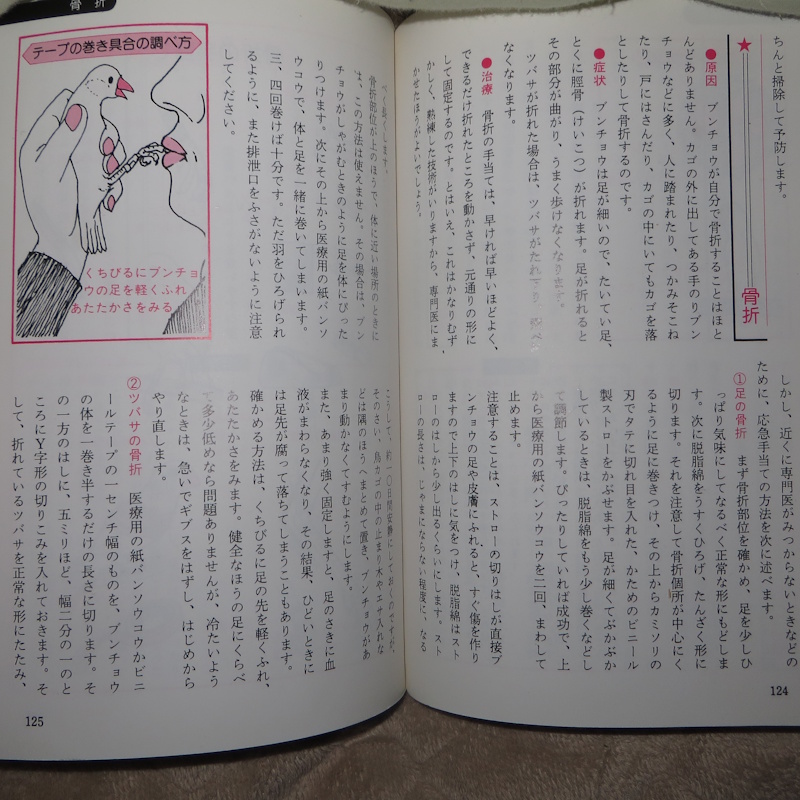 ちんと掃除して予防します。
骨折
●原因　ブンチョウが自分で骨折することはほと
んどありません。カゴの外に出してある手のりブン
チョウなどに多く、人に踏まれたり、つかみそこね
たり、戸にはさんだり、カゴの中にいてもカゴを落
としたりして骨折するのです。
●症状　ブンチョウは足が細いので、たいてい足、
とくに脛骨（けいこつ）が折れます。足が折れると
その部分が曲がり、うまく歩けなくなります。
ツバサが折れた場合は、ツバサがたれ下り、飛べ
なくなります。
●治療　骨折の手当ては、早ければ早いほどよく、
できるだけ折れたところを動かさず、元通りの形に
して固定するのです。とはいえ、これはかなりむず
かしく、熟練した技術がいりますから、専門医にま
かせたほうがよいでしょう。
しかし、近くに専門医がみつからないときなどの
ために、応急手当ての方法を次に述べます。
①足の骨折　まず骨折部位を確かめ、足を少しひ
っぱり気味にしてなるべく正常な形にもどしま
す。次に脱脂綿をうすくひろげ、たんざく形に
切ります。それを注意して骨折個所が中心にく
るように足に巻きつけ、その上からカミソリの
刃でタテに切れ目を入れた、かためのビニール
製ストローをかぶせます。足が細くてぶかぶか
しているときは、脱脂綿をもう少し巻くなどし
て調節します。ぴったりしていれば成功で、上
から医療用の紙バンソウコウを二回、まわして
止めます。
注意することは、ストローの切りはしが直接ブ
ンチョウの足や皮膚にふれると、すぐ傷を作り
ますので上下のはしに気をつけ、脱脂綿はスト
ローのはしから少し出るくらいにします。スト
ローの長さは、じゃまにならない程度に、なる
124
骨折
べく長くします。
骨折部位が上のほうで、体に近い場所のときに
は、この方法は使えません。その場合は、ブン
チョウがしゃがむときのように足を体にぴった
りつけます。次にその上から医療用の紙バンソ
ウコウで、体と足を一緒に巻いてしまいます。
三、四回巻けば十分です。ただ羽をひろげられ
るように、また排泄口をふさがないように注意
してください。
テープの巻き具合の調べ方
くちびるにブンチョ
ウの足を軽くふれ
あたたかさをみる
こうして、約一〇日間安静にしておくのですが、
そのさい、鳥カゴの中の止まり木やエサ入れな
どは隅のほうへまとめて置き、ブンチョウがあ
まり動かなくてすむようにします。
また、あまり強く固定しますと、足のさきに血
液がまわらなくなり、その結果、ひどいときに
は足先が腐って落ちてしまうこともあります。
確かめる方法は、くちびるに足の先を軽くふれ、
あたたかさをみます。健全なほうの足にくらべ
て多少低めなら問題ありませんが、冷たいよう
なときは、急いでギブスをはずし、はじめから
やり直します。
②ツバサの骨折　医療用の紙バンソウコウかビニ
ールテープの一センチ幅のものを、ブンチョウ
の体を一巻き半するだけの長さに切ります。そ
の一方のはしに、五ミリほど、幅二分の一のと
ころにY字形の切りこみを入れておきます。そ
して、折れているツバサを正常な形にたたみ、
125